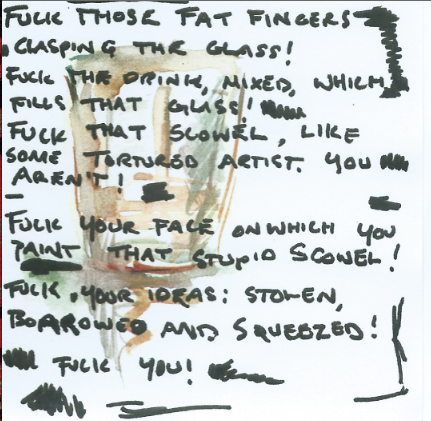 FUCK THOSE FAT FINGERS
CLASPING THE GLASS!
FUCK THE DRINK, MIXED, WHICH
FILLS THAT GLASS!
FUCK THAT SCOWEL, LIKE
SOME TORTURED ARTIST. YOU
AREN'T!
FUCK YOUR FACE ON WHICH YOU
PAINT THAT STUPID SCOWEL!
FUCK YOUR IDEAS: STOLEN,
BOARROWED AND SQUEEZED!
FUCK YOU!